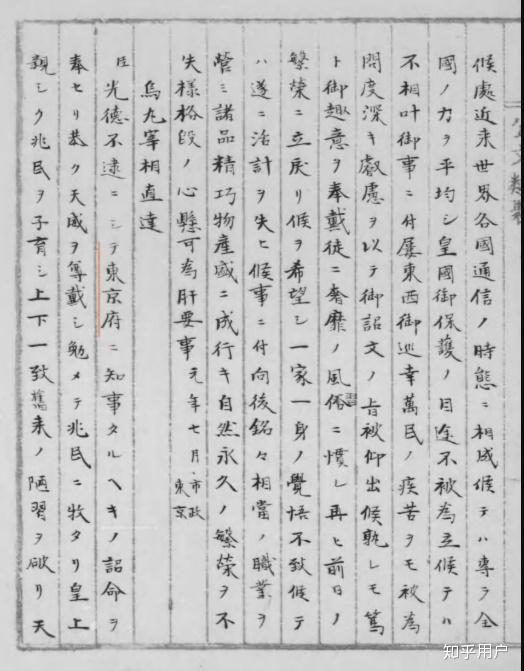 候處近来世界各國通信ノ時態ニ相成候テハ專ラ全
國ノ力ヲ平均シ皇國御保護ノ目途不被為立候テハ
不相叶御事ニ付屡東西御巡幸萬民ノ疾苦ヲモ被為
問度深キ叡慮ヲ以テ御詔文ノ旨被仰出候孰レモ篤
ト御趣意ヲ奉戴徒ニ奢靡ノ風俗習ニ慣レ再ヒ前日ノ
繁榮ニ立戻リ候ヲ希望シ一家一身ノ覺悟不致候テ
ハ遂ニ活計ヲ失ヒ候事ニ付向後銘々相當ノ職業ヲ
營ミ諸品精巧物産盛ニ成行キ自然永久ノ繁榮ヲ不
失様格段ノ心懸可為肝要事 元年七月・市政東京
烏丸宰相直達
臣光德不逮ニシテ東京府ニ知事タルヘキノ詔命ヲ
奉セリ恭ク天威ヲ尊戴シ勉メテ兆民ニ牧タリ皇上
親シク兆民ヲ子育シ上下一致舊来ノ陋習ヲ破リ天
知乎用户